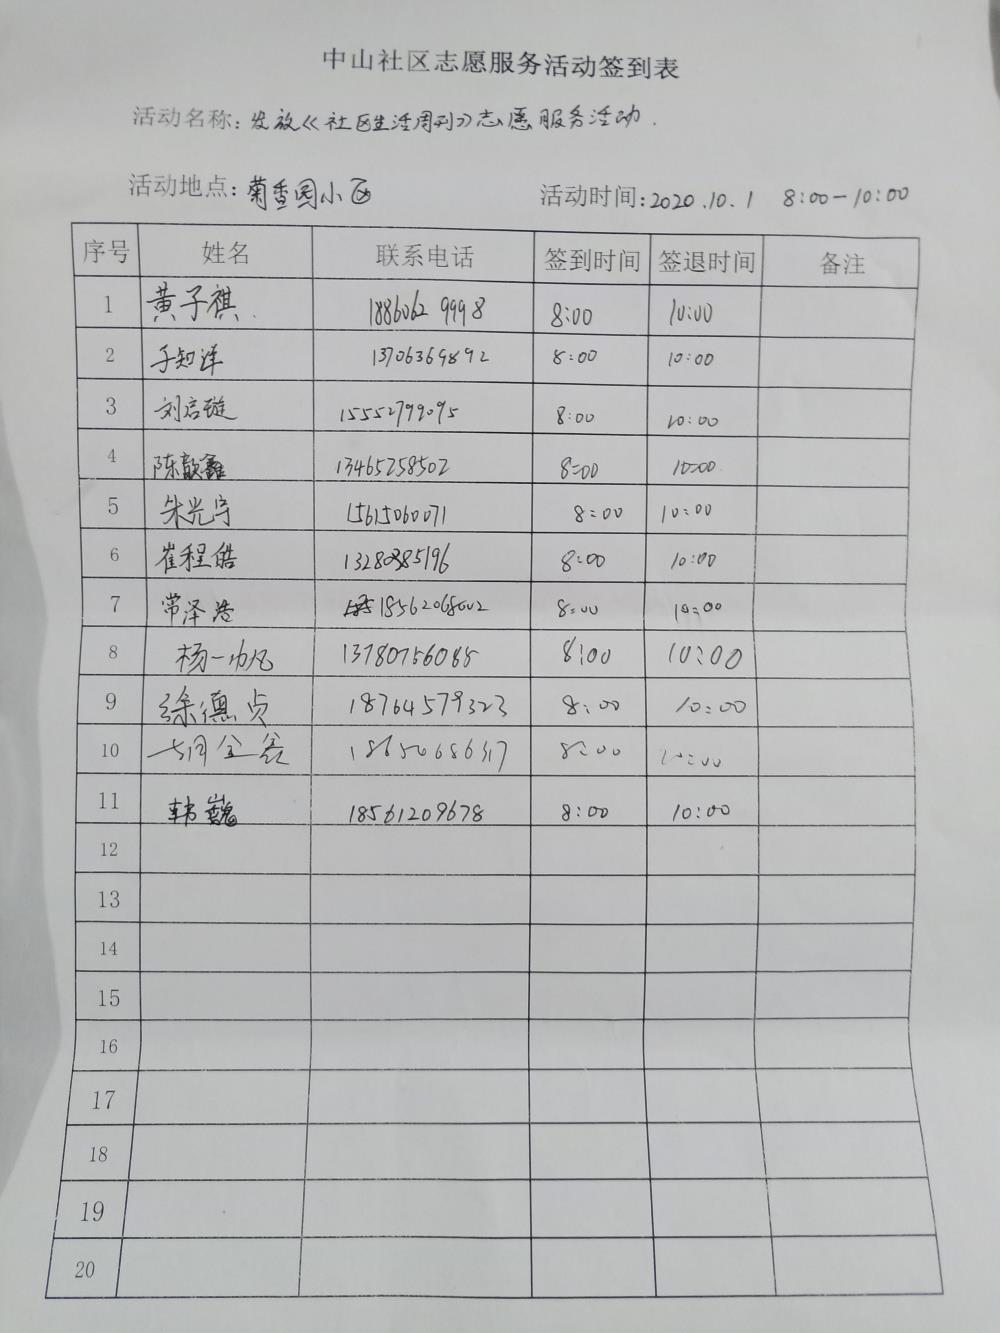 中山社区志愿服务活动签到表
活动名称:发放《社区生活周刊》志愿服务活动.
活动地点:菊香园小区 活动时间:2020.10.1 8:00-10:00
序号 姓名 联系电话 签到时间 签退时间 备注
1 黄子祺. 1886062 9998 8:00 10:00
2 于知泽 13706369892 8:00 10:00
3 刘启璇 15552799095 8:00 10:00
4 陈歆鑫 13465258502 8:00 10:00
5 朱光宇 15615060071 8:00 10:00
6 崔程皓 13280385196 8:00 10:00
7 常泽浩 18562068002 8:00 10:00
8 杨一帆 13780756088 8:00 10:00
9 徐德贞 18764579323 8:00 10:00
10 8:00 10:00
11 韩巍 18561209678 8:00 10:00
12
13
14
15
16
17
18
19
20